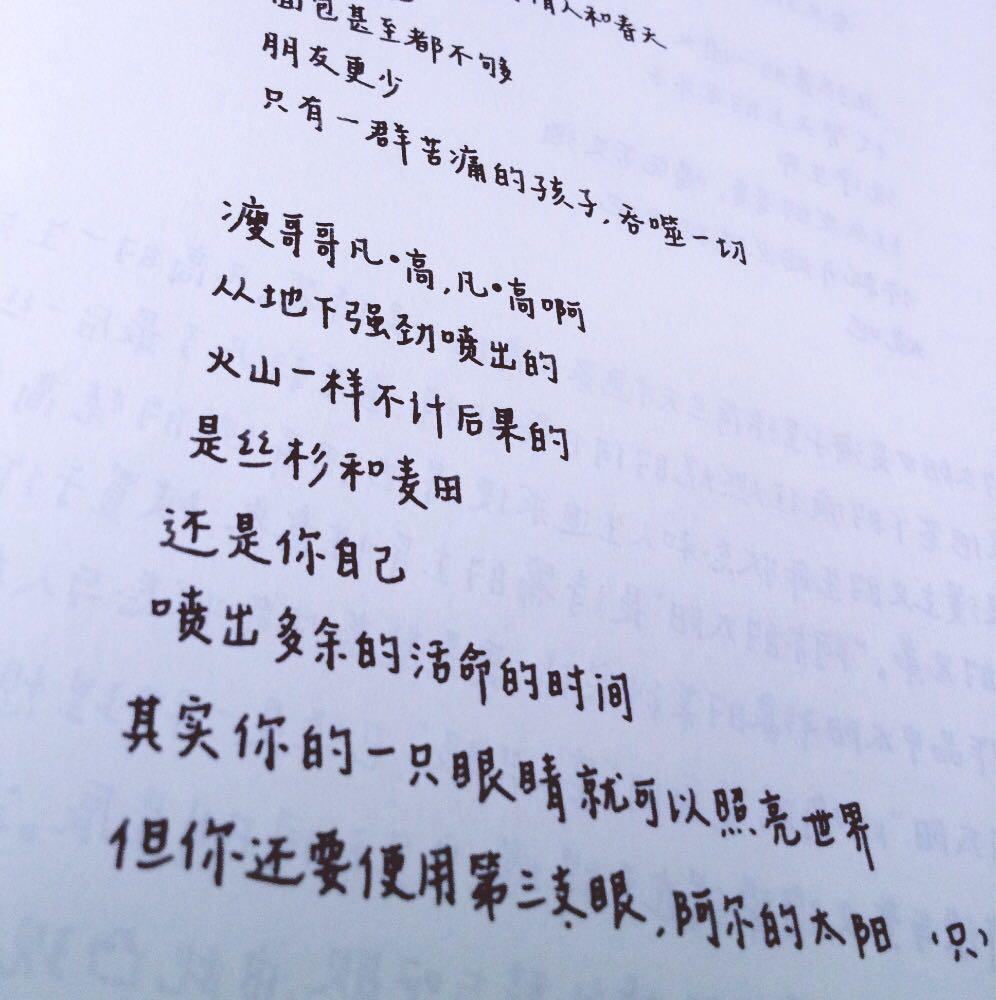 情人和春天
面包甚至都不够
朋友更少
只有一群苦痛的孩子,吞噬一切
瘦哥哥凡·高,凡·高啊
从地下强劲喷出的
火山一样不计后果的
是丝杉和麦田
还是你自己
喷出多余的活命的时间
其实你的一只眼睛就可以照亮世界
但你还要使用第三支眼,阿尔的太阳(只)